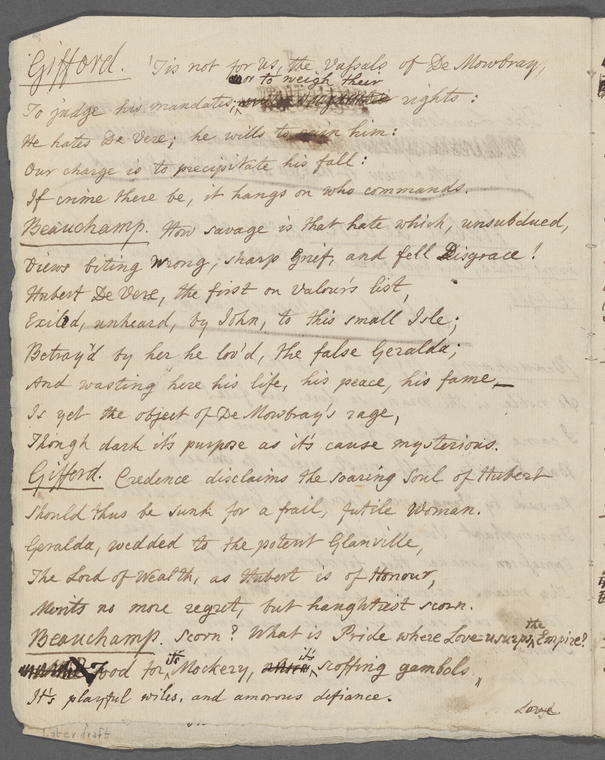 Gifford. 'Tis not for us, the Vassals of De Mowbray,
nor to weigh their
To judge his mandates; rights:
He hates De Vere; he wills to ruin him:
Our charge is to precipitate his fall:
If crime there be, it hangs on who commands.
Beauchamp. How savage is that hate which, unsubdued,
Views biting Wrong, sharp Grief, and fell Disgrace!
Hubert De Vere, the first on Valour's list,
Exiled, unheard, by John, to this small Isle;
Betray'd by her he lov'd, the false Geralda;
And wasting here his life, his peace, his fame,—
Is yet the object of De Mowbray's rage,
Though dark it's purpose as it's cause mysterious.
Gifford. Credence disclaims the soaring Soul of Hubert
Should thus be sunk for a frail, futile Woman.
Geralda, wedded to the potent Glanville,
The Lord of Wealth, as Hubert is of Honour,
Merits no more regret, but haughtiest scorn.
Beauchamp. Scorn? What is Pride where Love usurps the Empire?
Food for it's Mockery, it's scoffing gambols,
It's playful wiles, and amorous defiance.
Love
Later draft